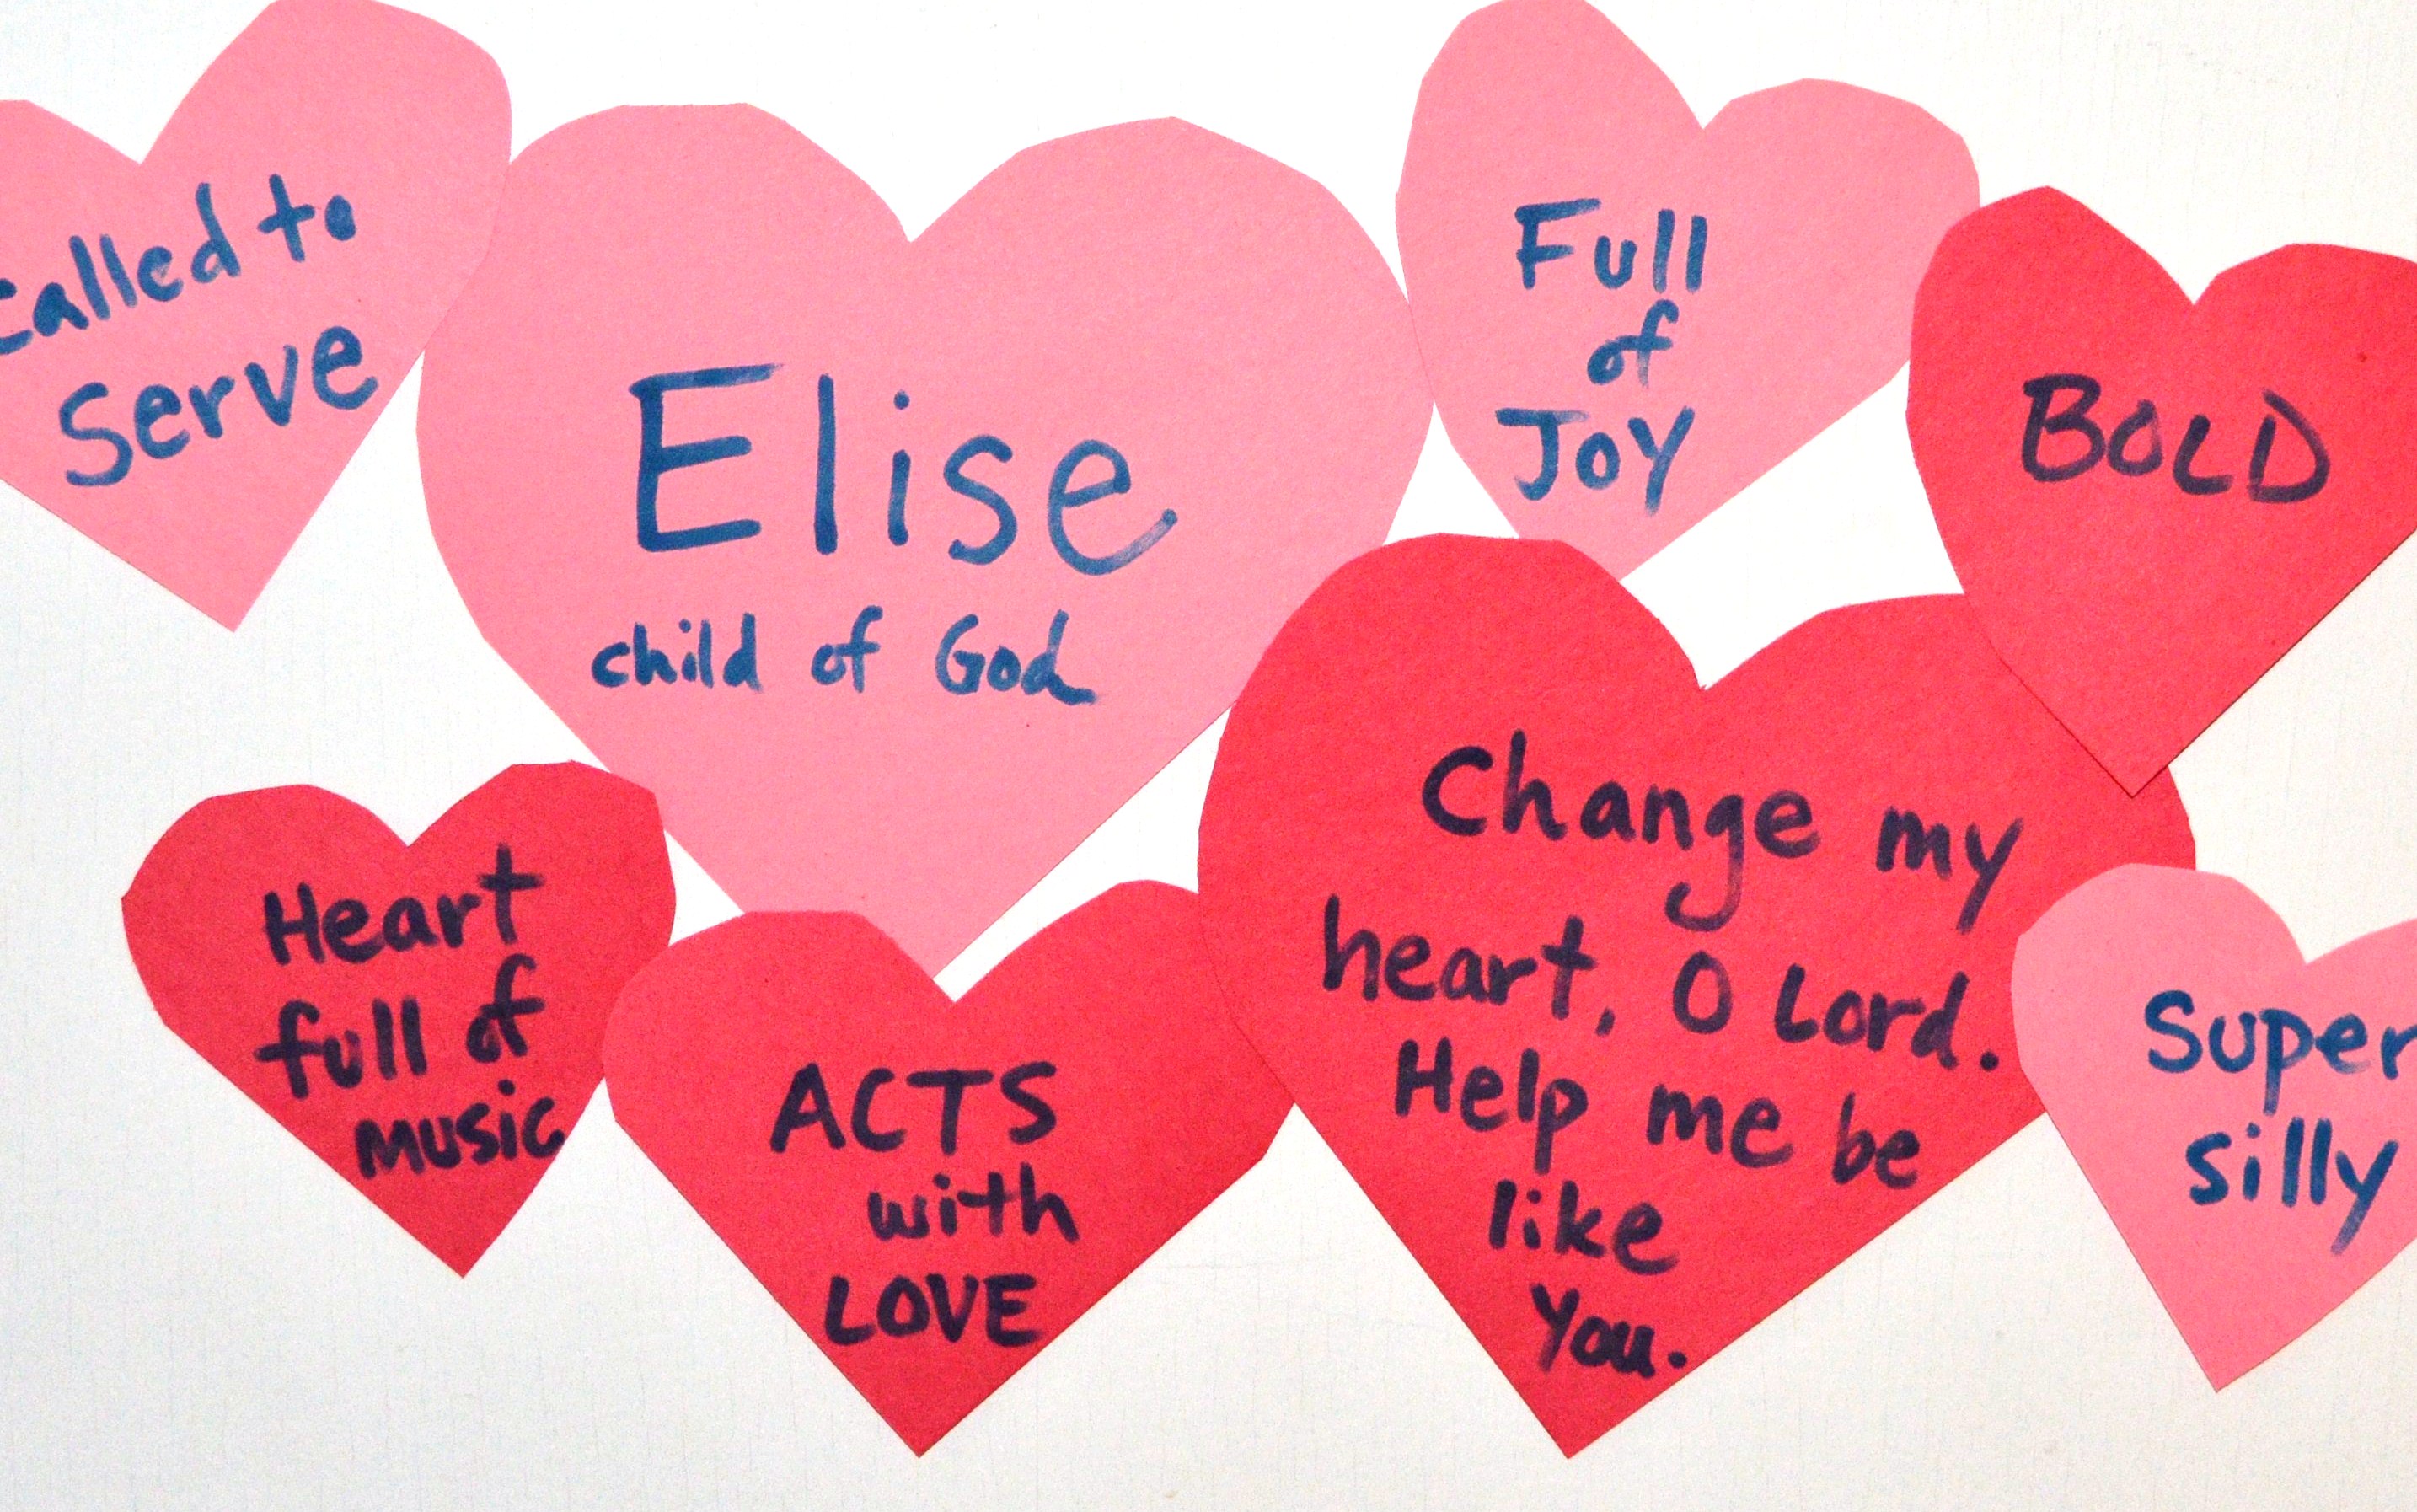 Called to
Serve
Elise
child of God
Full
of
JOY
BOLD
Heart
full of
music
ACTS
with
LOVE
Change my
heart, O Lord.
Help me be
like
You.
Super
silly